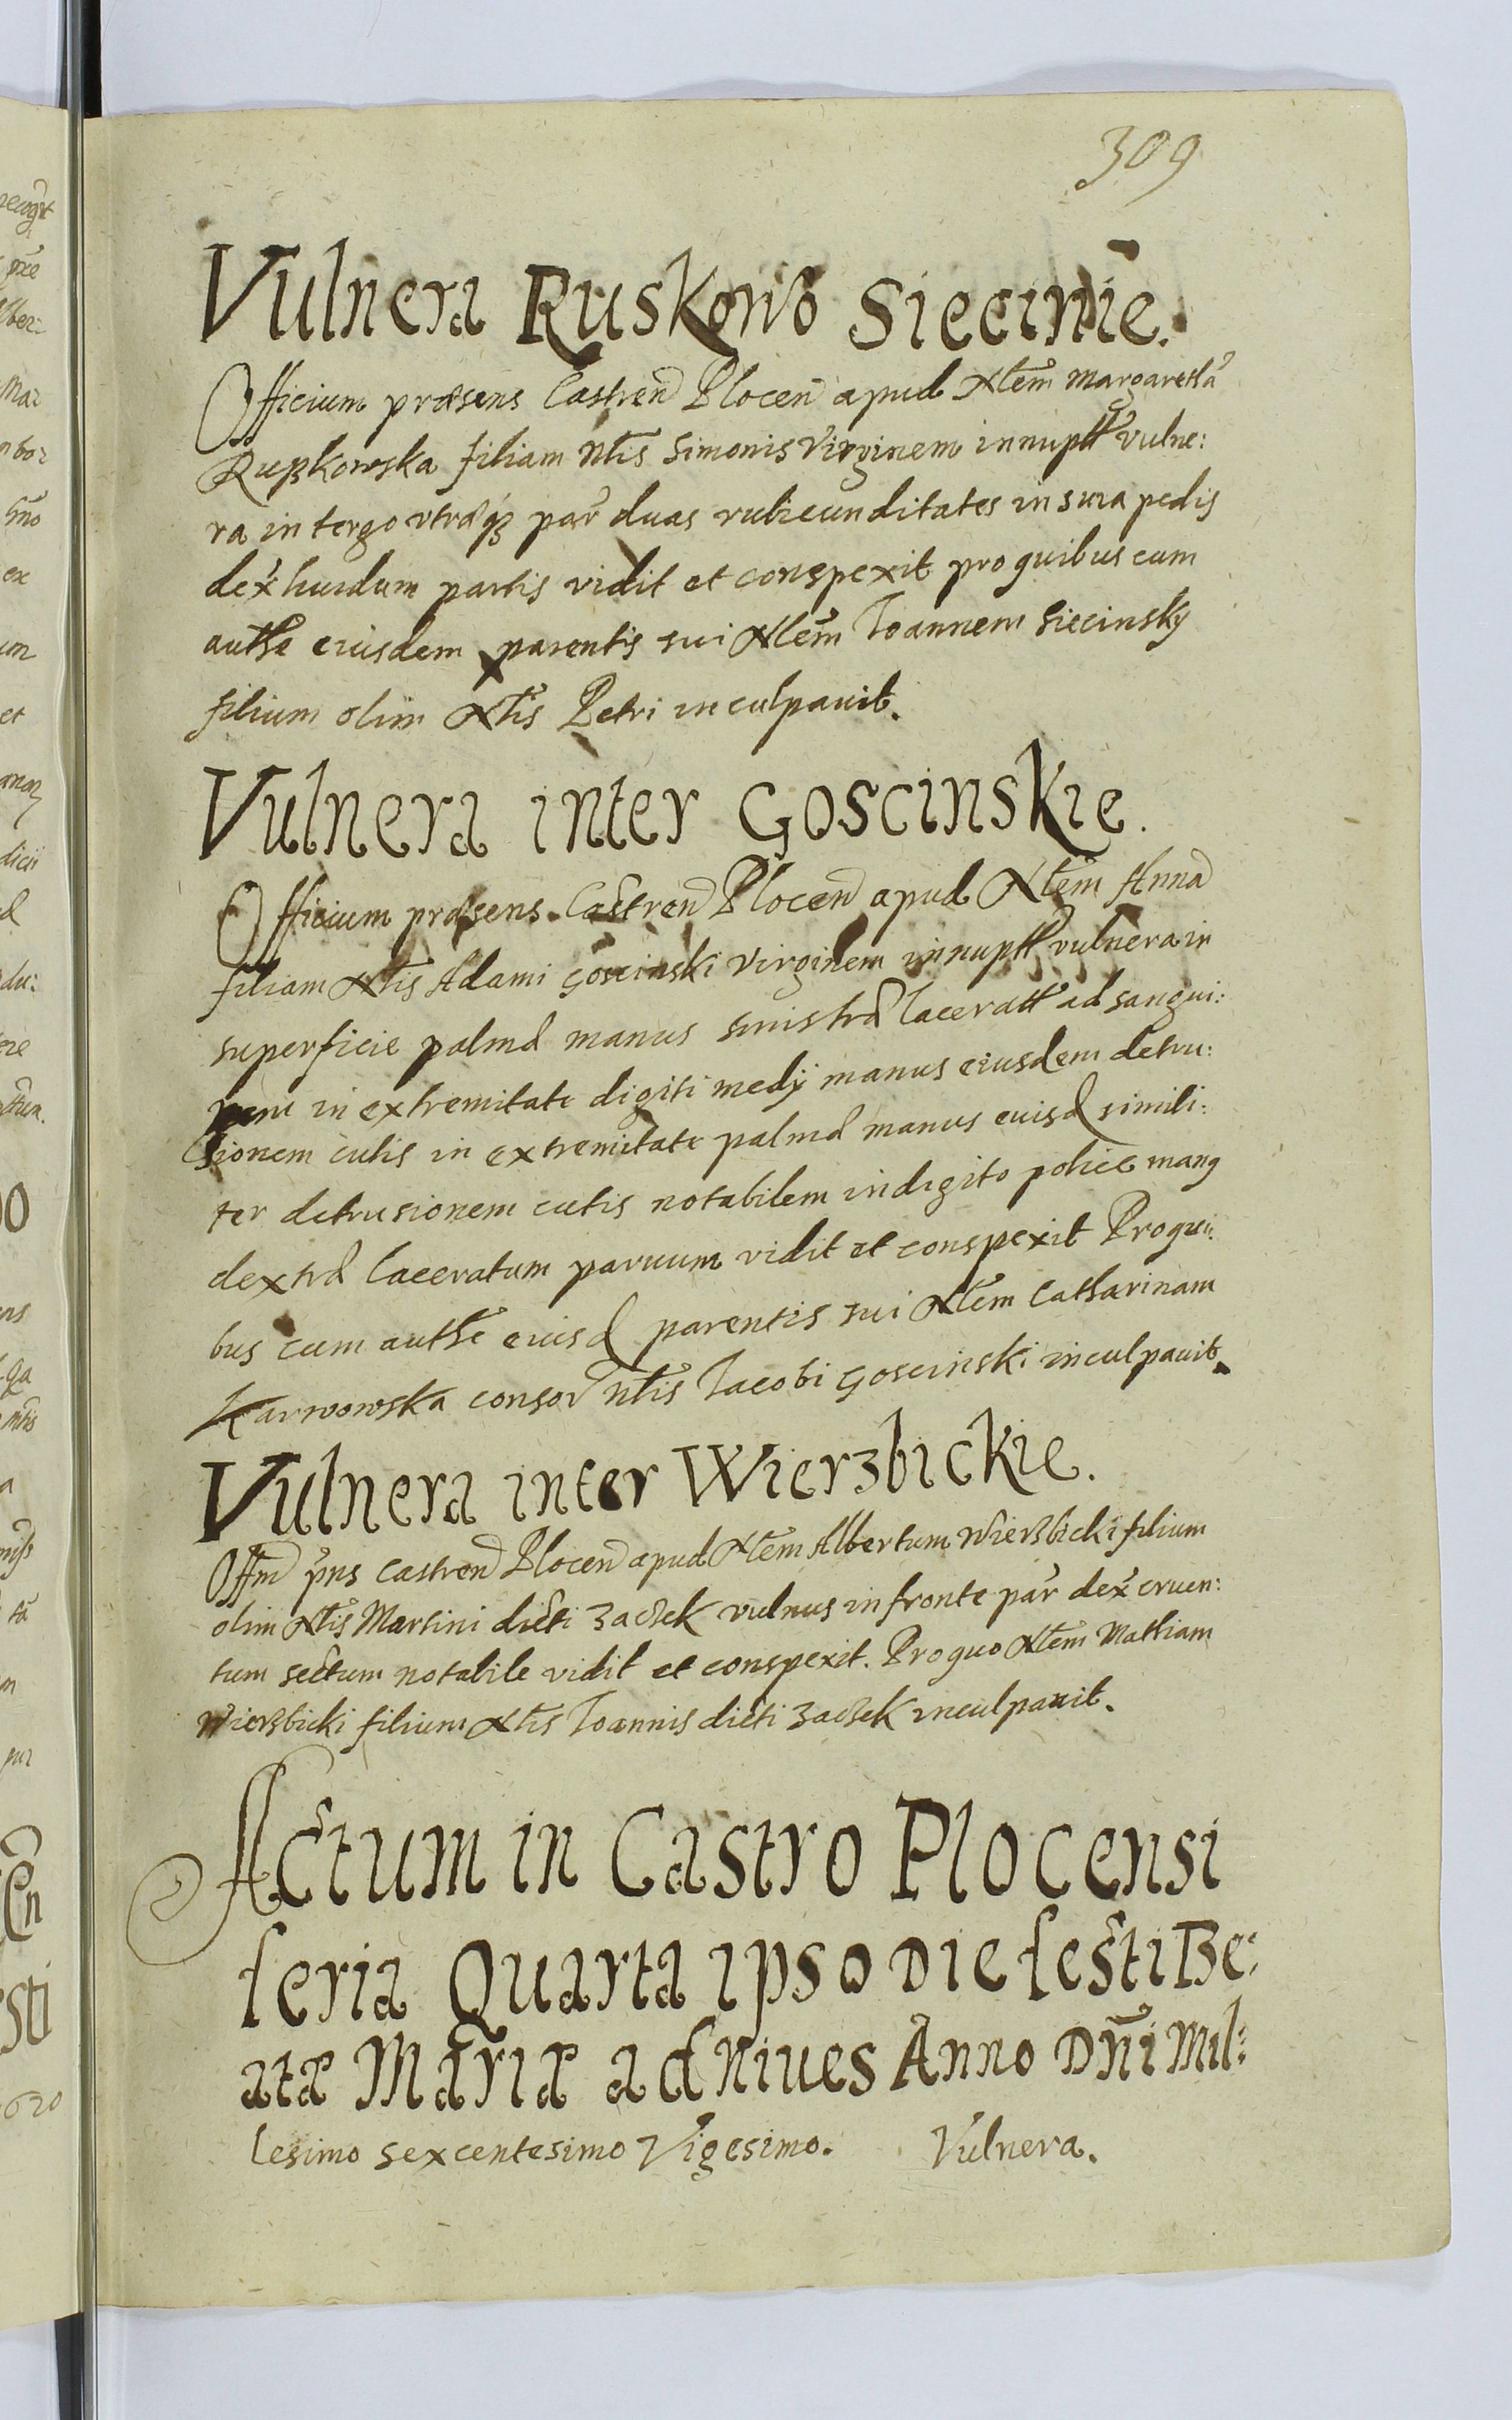 309
Vulnera Ruskowō Siecinīe.
Officium præsens Castreñ Plocen̄ apud Nlem̃ Margarethā
Rupskowska filiam Nlis̃ Simonis Virginem innuptt̃ vulne:
ra in tergo vtráq₃ par̃ duas rubicunditates in sura pedis
dex̃ liuidum partis vidit et conspexit pro quibus cum
auth̃e eiusdem parentis sui Nlem̃ Ioannem Siecinsky
filium olim Nlis̃ Petri inculpauit.
Vulnera inter Goscinskie.
Officium præsens Castreñ Ploceñ apud Nlem̃ Annā
filiam Nlis̃ Adami Goscinski Virginem innuptt̃ vulnera in
superficie palmæ manus sinistræ laceratt̃ ad sangui:
nem in extremitate digiti medij manus eiusdem detru:
sionem cutis in extremitate palmæ manus eiusd̃ simili:
ter detrusionem cutis notabilem in digito police man9
dextræ laceratum paruum vidit et conspexit Pro qui:
bus cum auth̃e eiusd̃ parentis sui Nlem̃ Catharinam
Karwowska consor̃ Nlis̃ Iacobi Goscinski inculpauit.
Vulnera inter Wierzbickie.
Offm̃ pñs Castreñ Ploceñ apud Nlem̃ Albertum Wierzbicki filium
olim Nlis̃ Martini dicti Zaczek vulnus in fronte par̃ dex̃ cruen:
tum sectum notabile vidit et conspexit. Pro quo Nlem̃ Mathiam
Wierzbicki filium Nlis̃ Ioannis dicti Zaczek inculpauit.
Actum in Castro Plocensi
feria Quarta ipso Die festi Be:
atæ Mariæ ad Niues Anno Dn̄i Mil:
lesimo sexcentesimo Vigesimo. Vulnera.